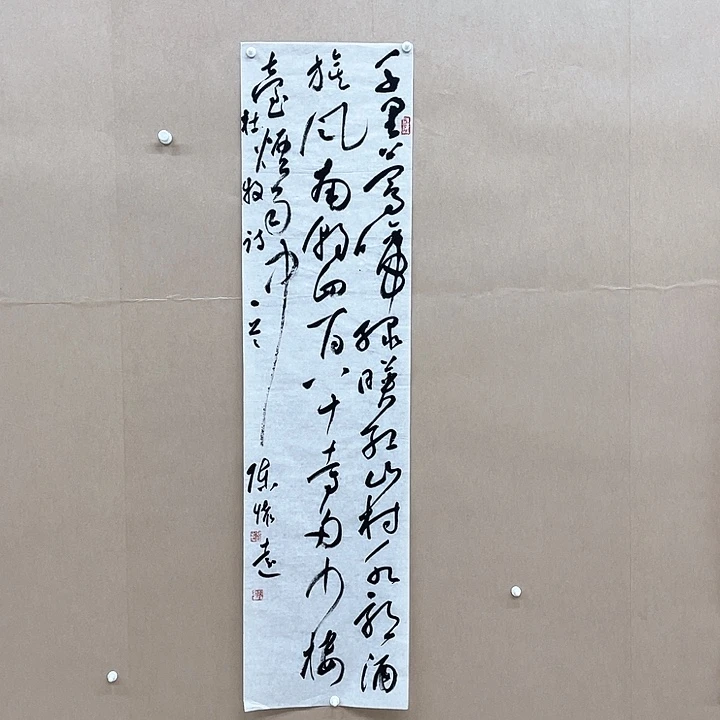 千里莺啼绿暎红山村水郭酒
旗风南朝四百八十寺多少楼
臺煙雨中
杜牧诗一首
陈怀远